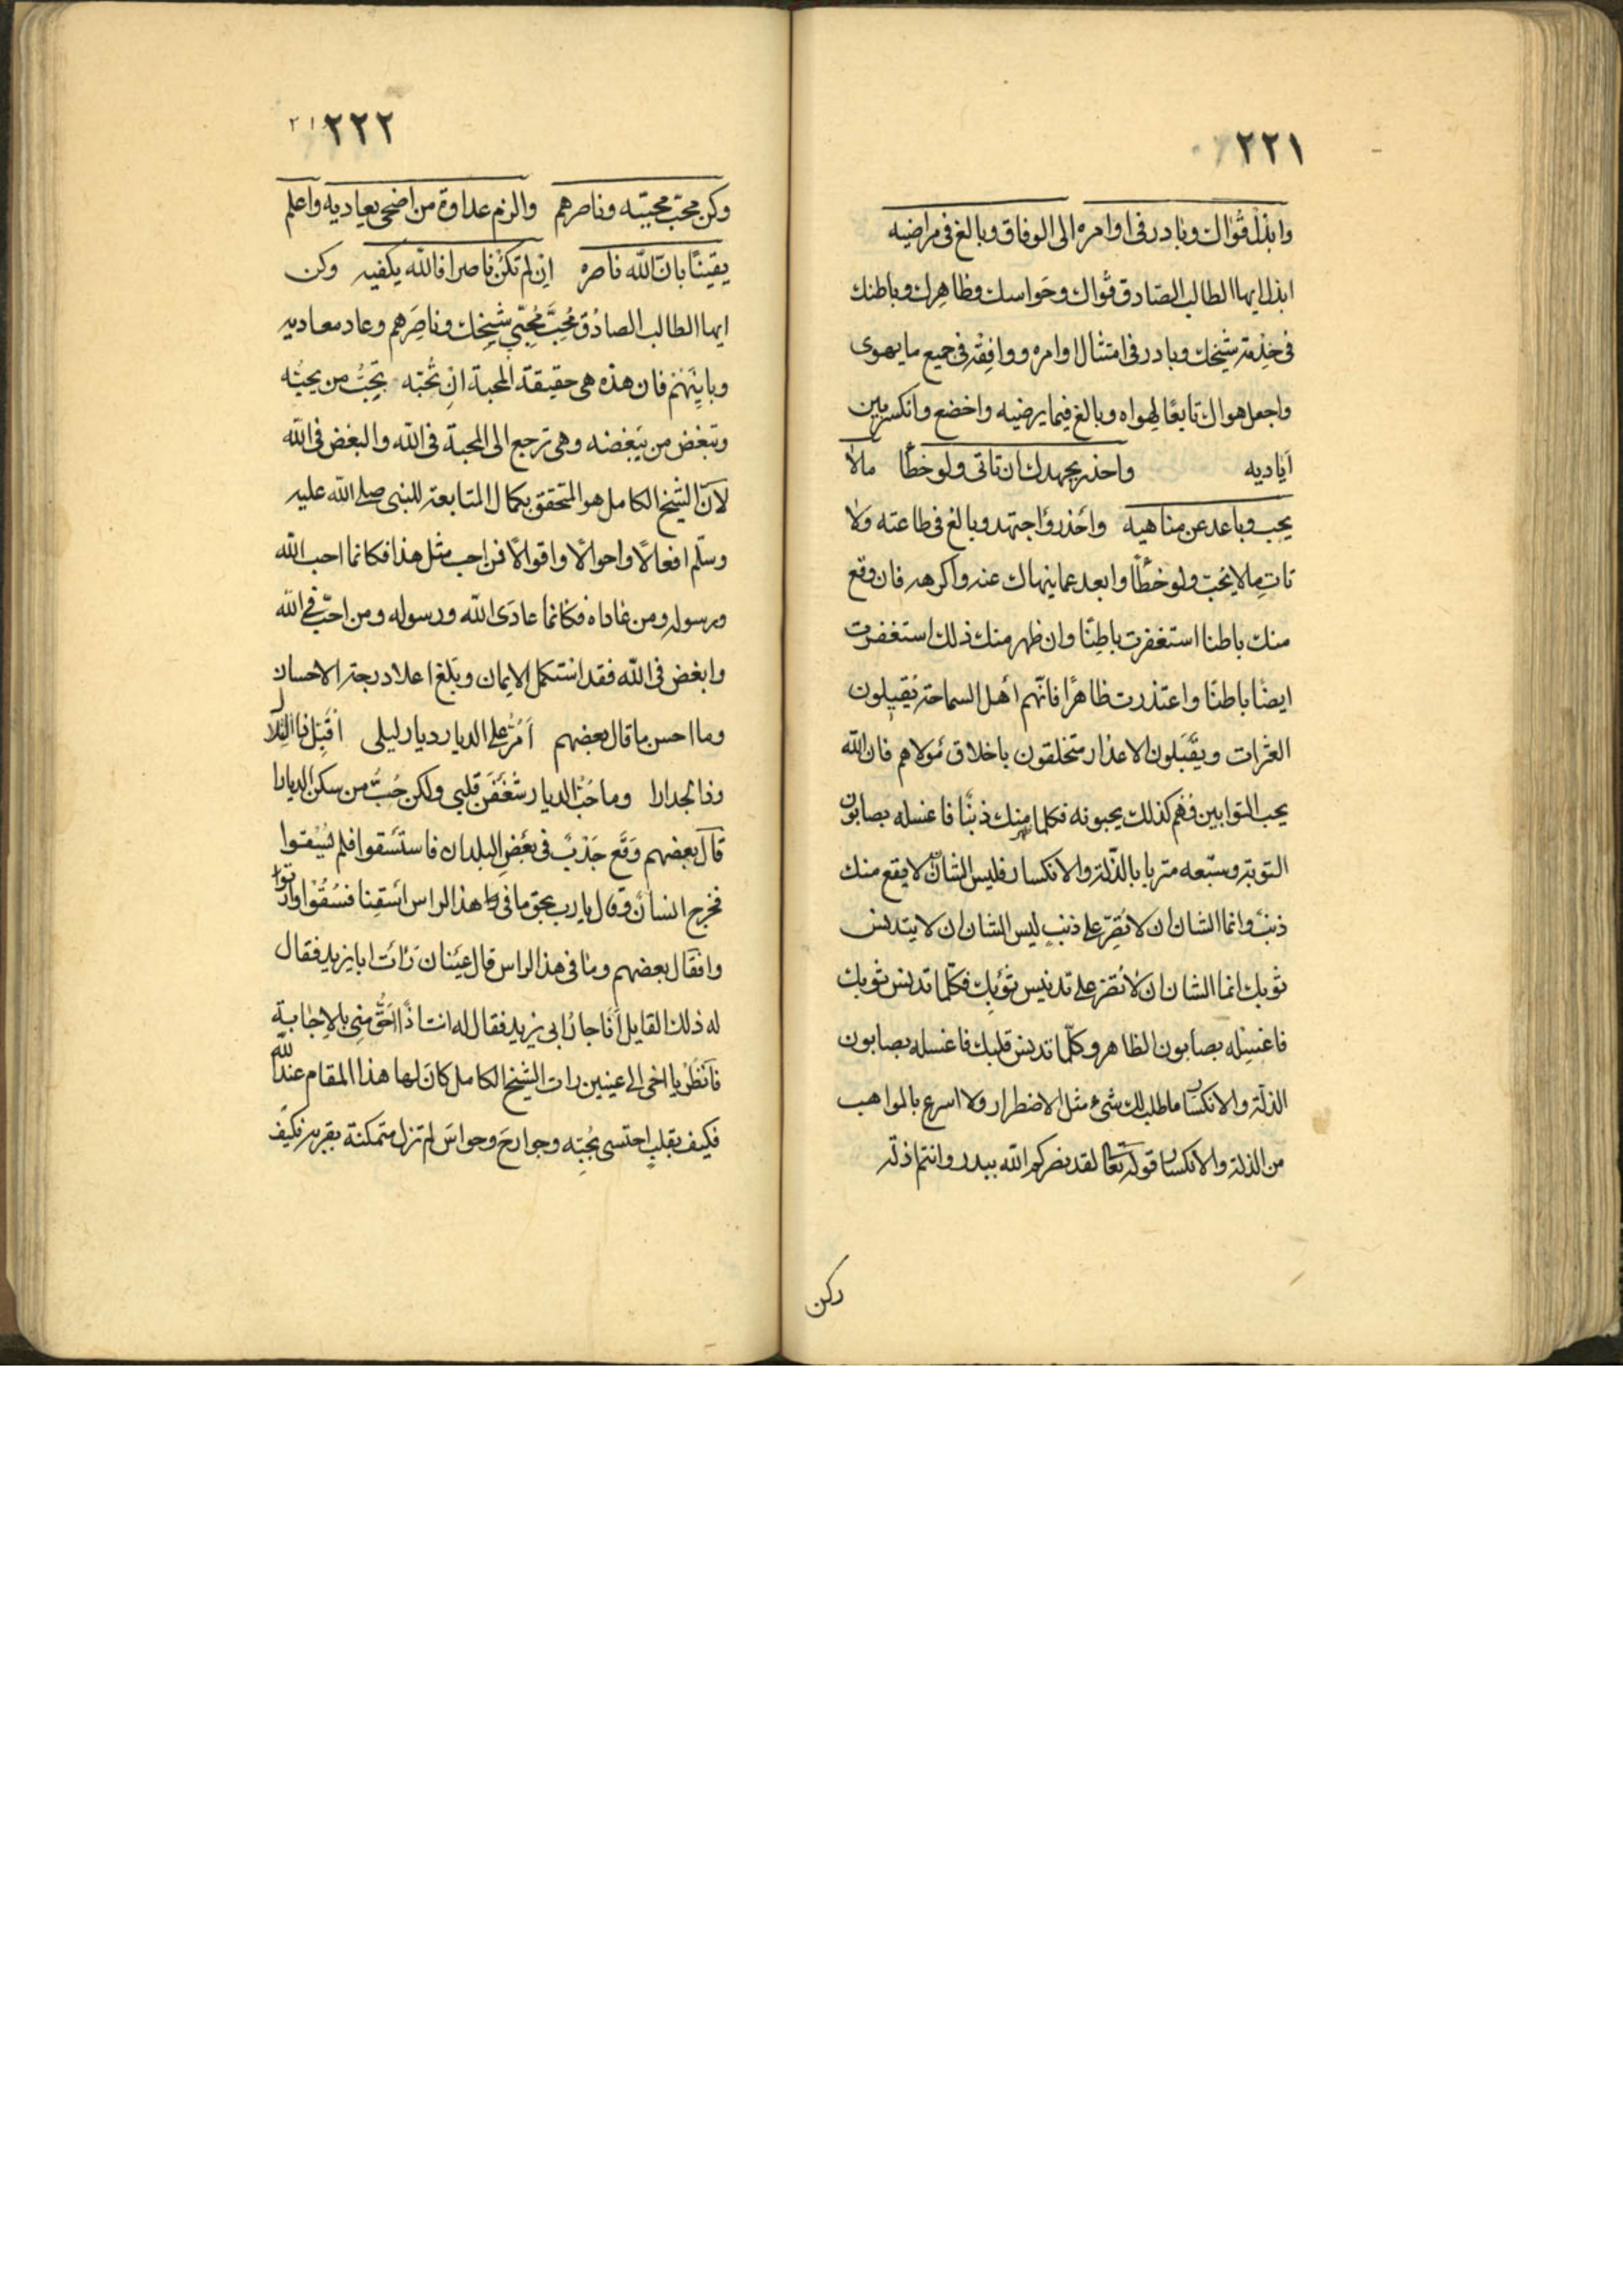 ٢٢١
وابذل قواك وبادر فى اوامره الى الوفاق وبالغ فى مراضيه
ابذل ايها الطالب الصادق قواك وحواسك وظاهرك وباطنك
فى خدمة شيخك وبادر فى امتثال اوامره ووافقه فى جميع ما يهوى
واجعل هواك تابعًا لهواه وبالغ فيما يرضيه واخضع وانكسر بين
اياديه واحذر بجهدك ان تاتى ولو خطًا مالا
يحب وباعد عن مناهيه واحذر واجتهد وبالغ فى طاعته ولا
تات مالا يحب ولو خطًا وابعد عما ينهاك عنه واكرهه فان وقع
منك باطنا استغفرت باطنًا وان ظهر منك ذلك استغفرت
ايضًا باطنًا واعتذرت ظاهرًا فانهم اهل السماحة يقيلون
العثرات ويقبلون الاعذار متخلقون باخلاق مولاهم فان الله
يحب التوابين فهم كذلك يحبونه فكلما منك ذنبًا فاغسله بصابون
التوبة وسبّعه متربا بالذلة والانكسار فليس الشان لا يقع منك
ذنب وانما الشان ان لا تصر على ذنب ليس الشان ان لا يتدنس
ثوبك انما الشان ان لا تصر على تدنيس ثوبك فكلما تدنس ثوبك
فاغسله بصابون الظاهر وكلما تدنس قلبك فاغسله بصابون
الذلة والانكسار ما طلب لك شىء مثل الاضطرار ولا اسرع بالمواهب
من الذلة والانكسار قوله تعالى لقد نصركم الله ببدر وانتم اذلة
وكن
٢٢٢
وكن محبّ محبيه وناصرهم والزم عداوة من اضحى يعاديه واعلم
يقينًا بان الله ناصره ان لم تكن ناصرا فالله يكفيه وكن
ايها الطالب الصادق مُحبَّ مُحبّي شيخك وناصرهم وعاد معاديه
وباينهم فان هذه هى حقيقة المحبة ان تُحبّه تحِبُّ من يحبُّه
وتبغض من يبغضه وهى ترجع الى المحبة فى الله والبغض فى الله
لان الشيخ الكامل هو المتحقق بكمال المتابعة للنبى صلى الله عليه
وسلم افعالًا واحوالًا واقوالًا فمن احب مثل هذا فكانما احب الله
ورسوله ومن عاداه فكانما عادى الله ورسوله ومن احبّ فى الله
وابغض فى الله فقد استكمل الايمان وبلغ اعلا درجة الاحسان
وما احسن ما قال بعضهم اَمُرُّ على الديار ديار ليلى اقبل ذا الجدار
وذا الجدارا وما حُبُّ الديار شَغَفن قلبى ولكن حُبُّ من سكن الديارا
قال بعضهم وقع جدبٌ فى بعض البلدان فاستسقوا فلم يُسقوا
فخرج انسان وقال يا رب بحق ما فى هذا الراس اسقنا فسُقوا وارتووا
وا فقال بعضهم وما فى هذا الراس قال عينان رات ابا يزيد فقال
له ذلك القايل انا جارُ ابى يزيد فقال له انت اذًا احق منى بالاجابة
فانظر يا اخى الى عينين رات الشيخ الكامل كان لها هذا المقام عند الله
فكيف بقلب احتسى بحُبّه وجوارح وحواس لم تزل متمكنة بقربه فكيف